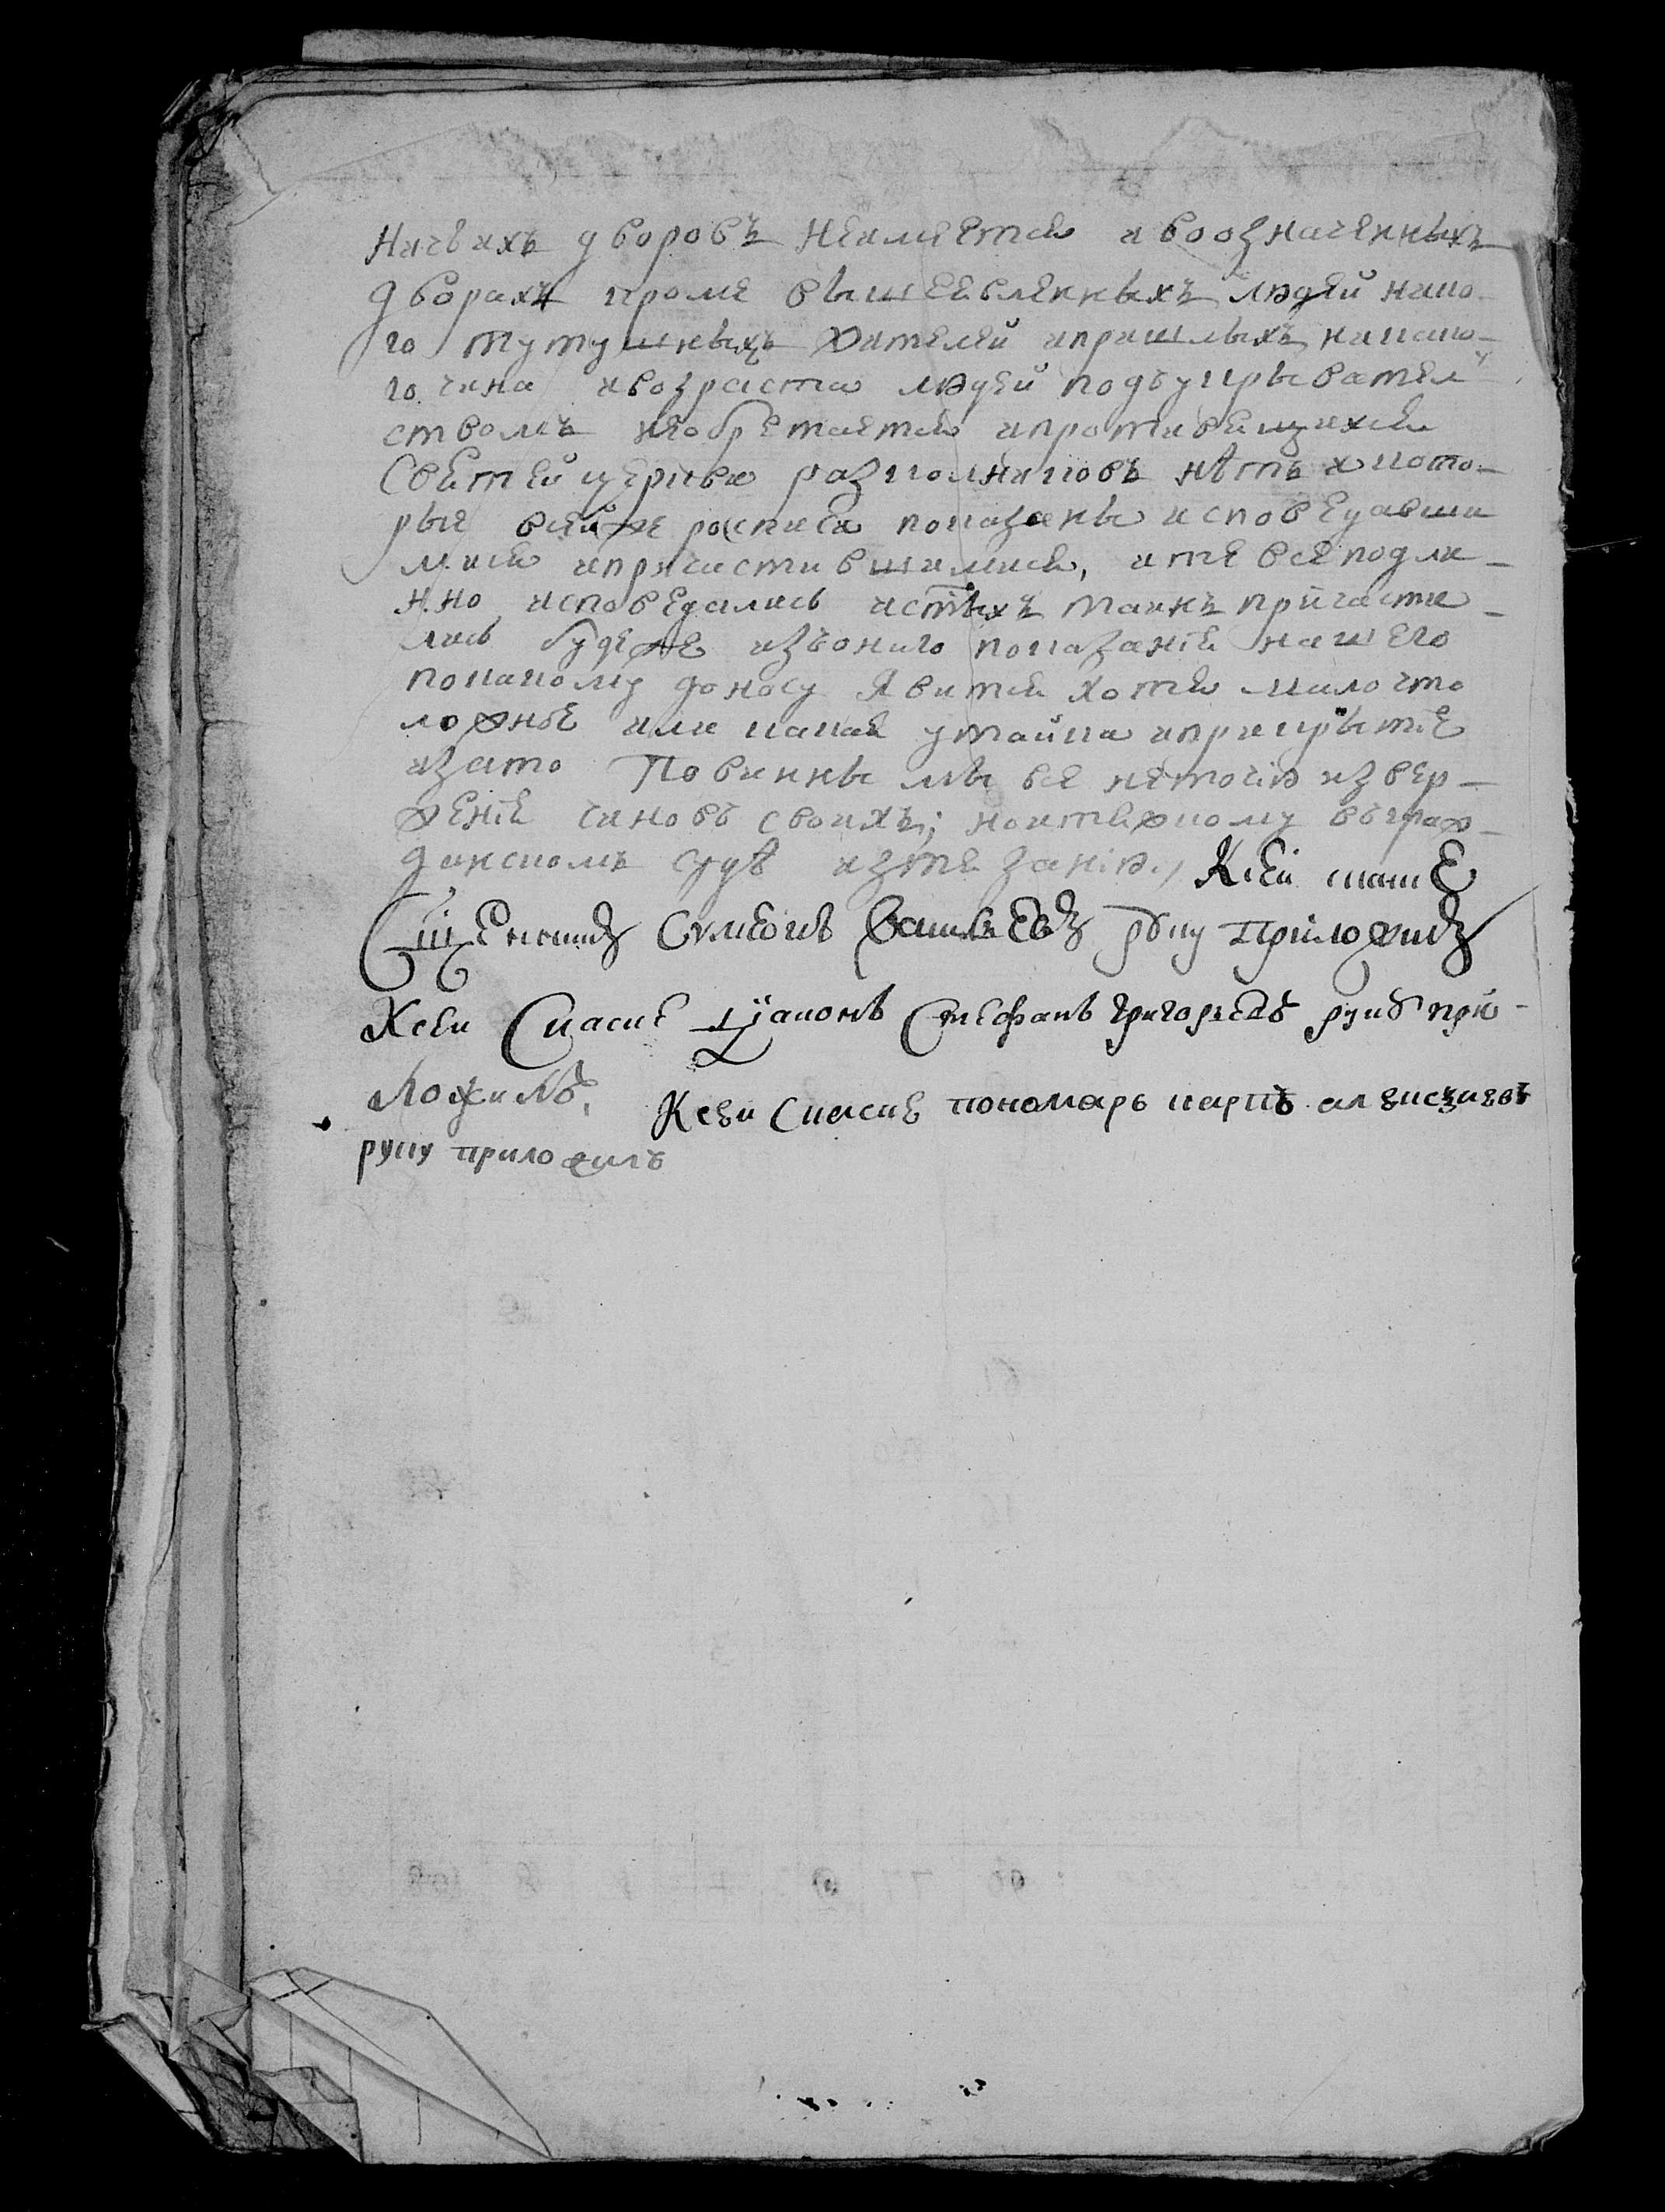 ничьихъ дворовъ неимеетси авоозначенныхъ
дворахъ кроме вышеевленныхъ людей како-
го тутушныхъ жителей ипришлыхъ никако-
го чина ивозраста людей подъукрывател
ствомъ необретаетси ипротивещихси
светей церкви разколниковъ нѣтъ а кото-
рые всейже росписи показаны исповедавши
миси ипричастившимиси, ите все подли-
нно исповедались истыхъ таинъ причасти-
лись будеже изъоного показаниѣ нашего
покакому доносу явитси хоте мало что
ложнѣе или какаѣ утайка иприкрытиѣ
изато повинны мы все неточию извер-
жениѣ чиновъ своихъ; ноитяжкому въграж-
данскомъ судѣ изтезанию, Ксей скаске
Сщенникъ Симеонъ Васильевъ руку приложилъ
Ксеи Скаске Дьаконъ Стефанъ григорьевъ руку при-
ложилъ, Ксеи скаске пономарь карпъ алексиевъ
руку приложилъ